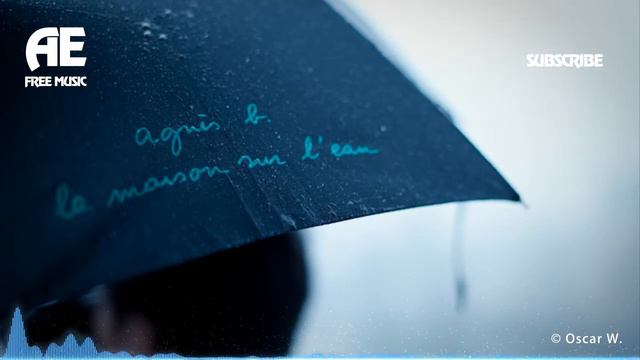 AE
FREE MUSIC
SUBSCRIBE
agnès b.
la maison sur l'eau
© Oscar W.